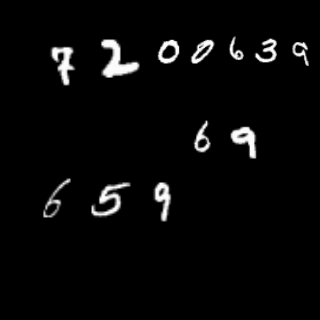 7200639
69
659